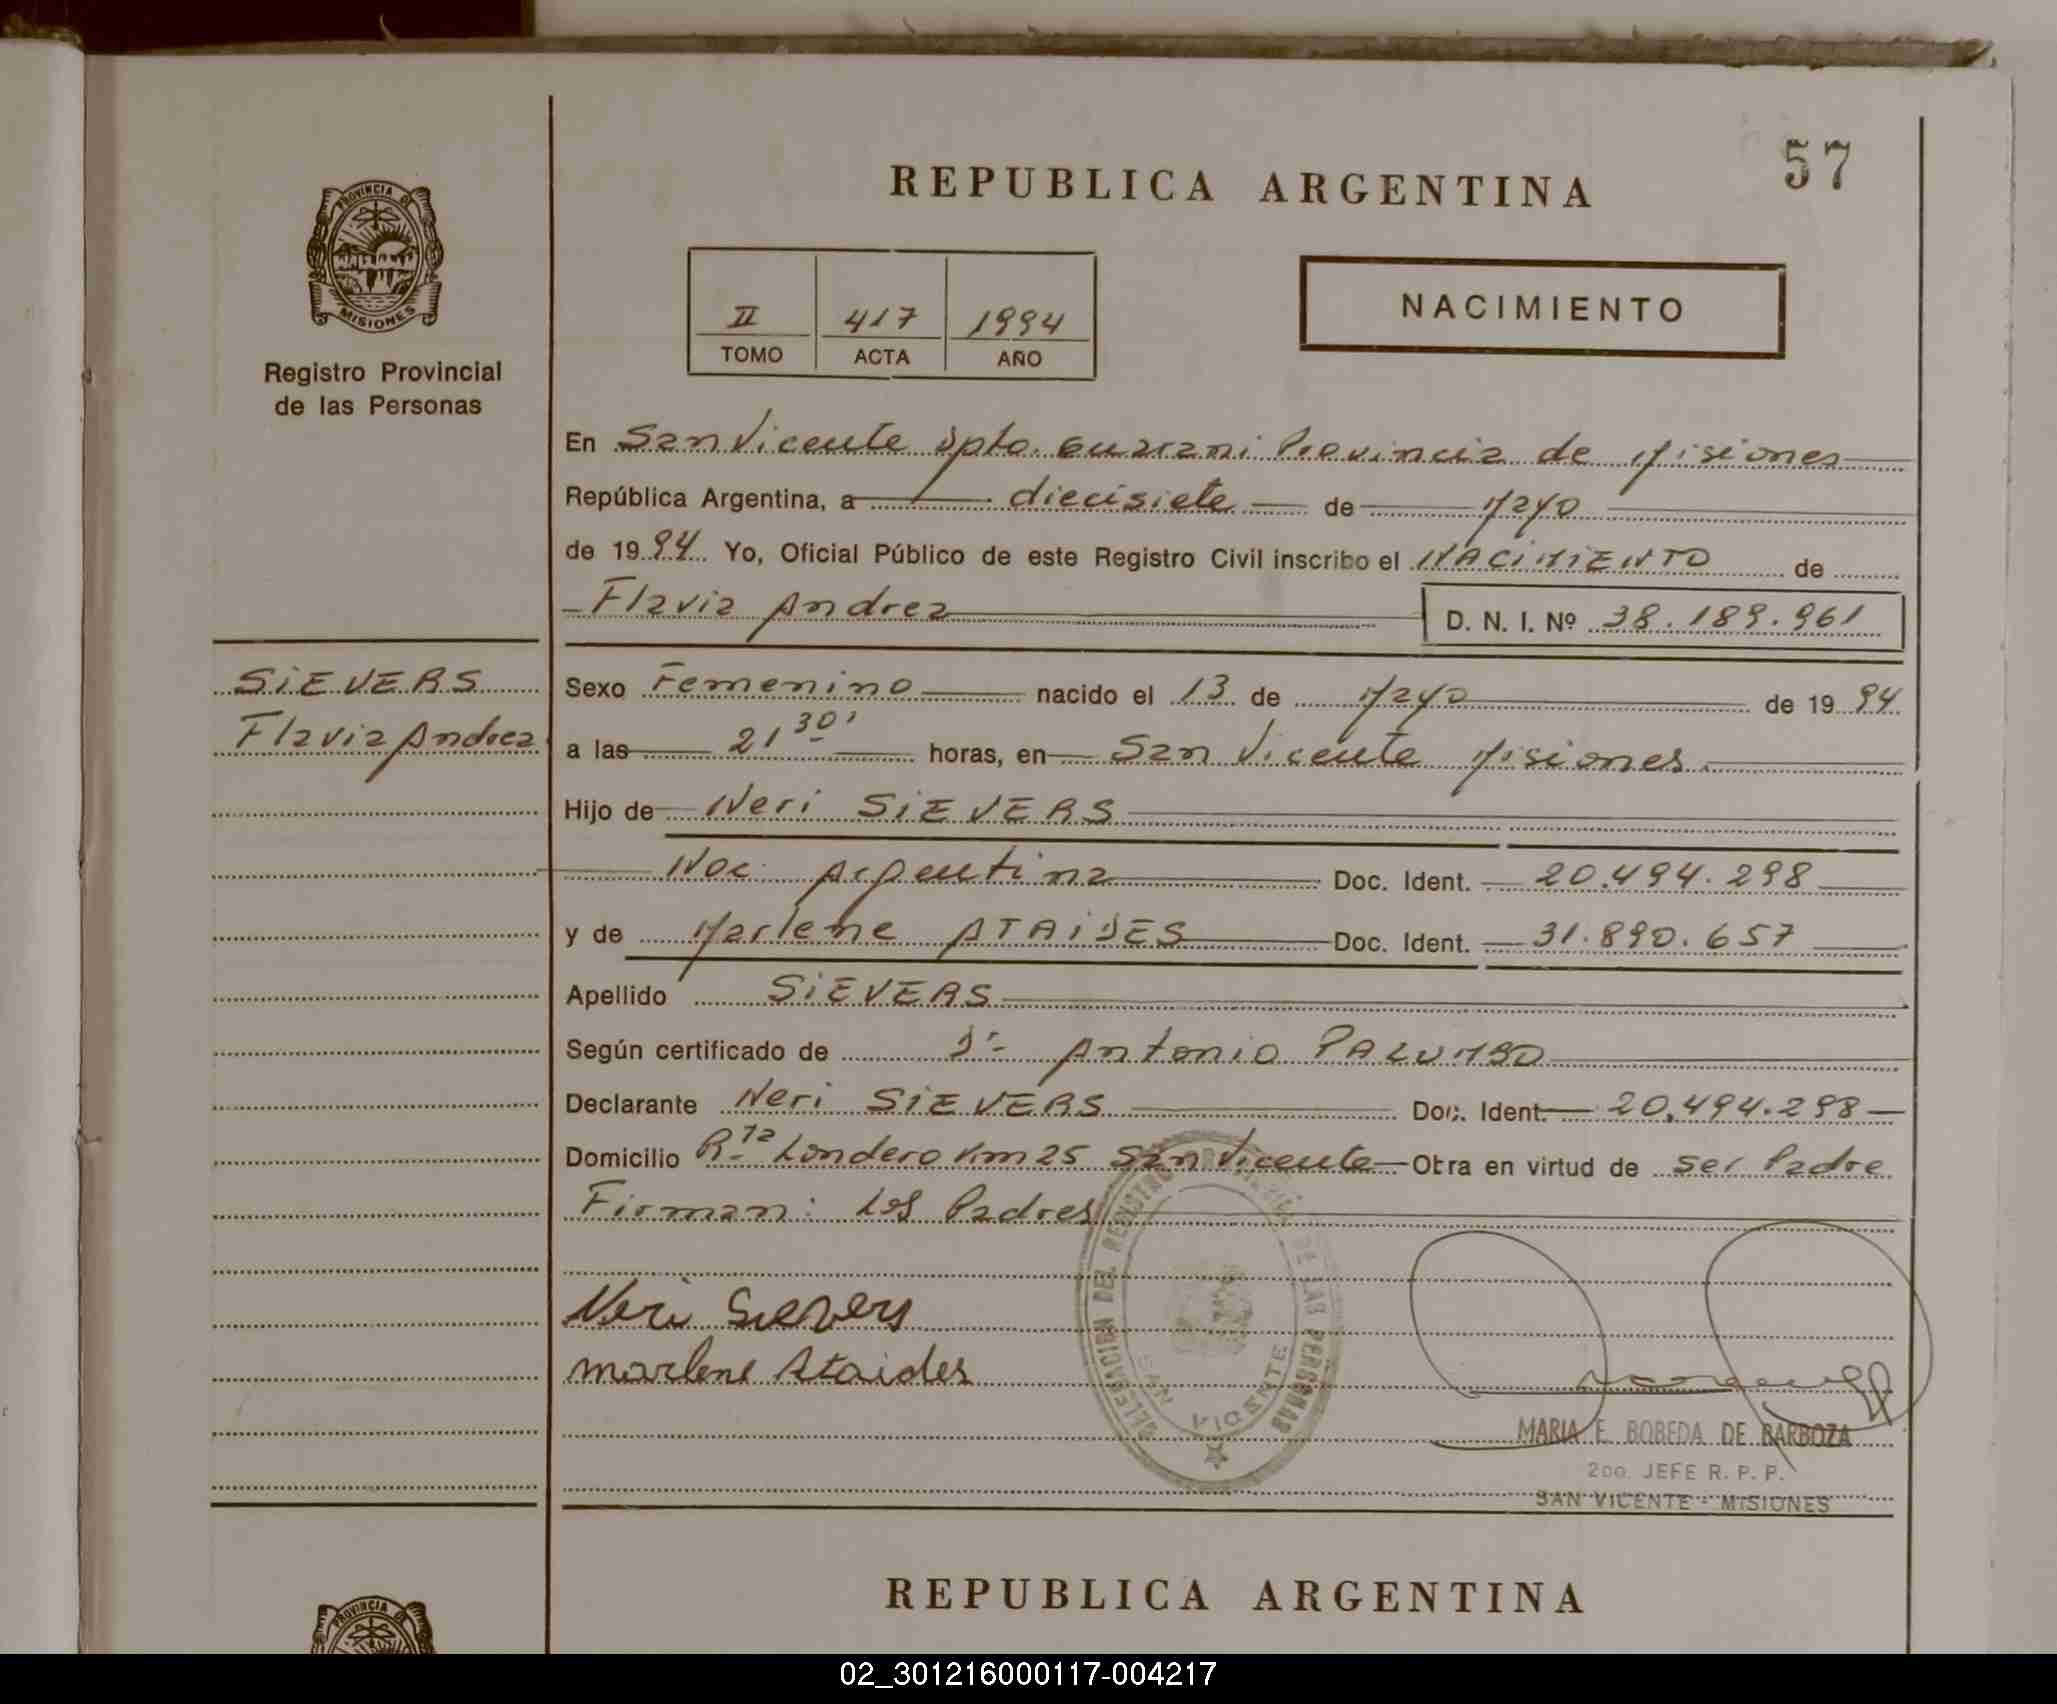 57
REPUBLICA ARGENTINA
PROVINCIA DE
MISIONES
Registro Provincial
de las Personas
II 417 1994
TOMO ACTA AÑO
NACIMIENTO
En San Vicente Dpto. Guarani Provincia de Misiones
República Argentina, a diecisiete de Mayo
de 1994 Yo, Oficial Público de este Registro Civil inscribo el NACIMIENTO de
Flavia Andrea D. N. I. Nº 38.189.961
SIEVERS
Flavia Andrea
Sexo Femenino nacido el 13 de Mayo de 1994
a las 21 30' horas, en San Vicente Misiones.
Hijo de Neri SIEVERS
Nac. Argentina Doc. Ident. 20.494.298
y de Marlene ATAIDES Doc. Ident. 31.890.657
Apellido SIEVERS
Según certificado de Dr. Antonio PALUMBO
Declarante Neri SIEVERS Doc. Ident. 20.494.298
Domicilio Rta Londero Km 25 San Vicente Obra en virtud de ser Padre
Firman: Los Padres
Neri Sievers
Marlene Ataides
DELEGACION DEL REGISTRO PROVINCIAL DE LAS PERSONAS
SAN VICENTE
MARIA E. BOBEDA DE BARBOZA
2do. JEFE R. P. P.
SAN VICENTE - MISIONES
REPUBLICA ARGENTINA
PROVINCIA DE
02_301216000117-004217